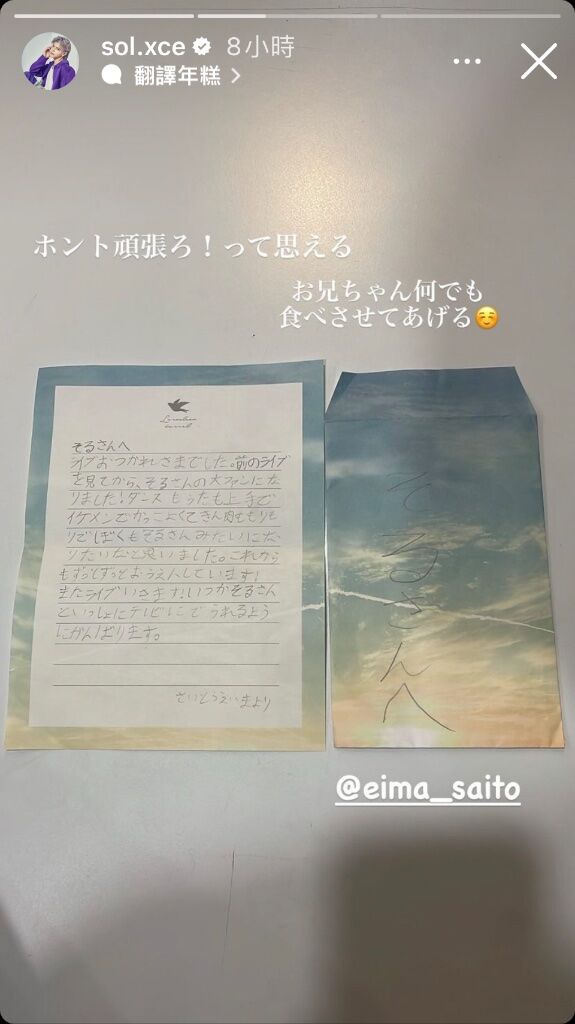 sol.xce 8小時
翻譯年糕 >
ホント頑張ろ！って思える
お兄ちゃん何でも
食べさせてあげる☺️
そるさんへ
ライブおつかれさまでした。前のライブ
を見てから、そるさんの大ファンにな
りました！ダンスもうたも上手で
イケメンでかっこよくてきん肉もりも
りでぼくもそるさんみたいにな
りたいなと思いました。これから
もずっとずっとおうえんしています！
またライブいきます！いつかそるさん
といっしょにテレビにでられるよう
にがんばります。
さいとうえいまより
そるさんへ
@eima_saito